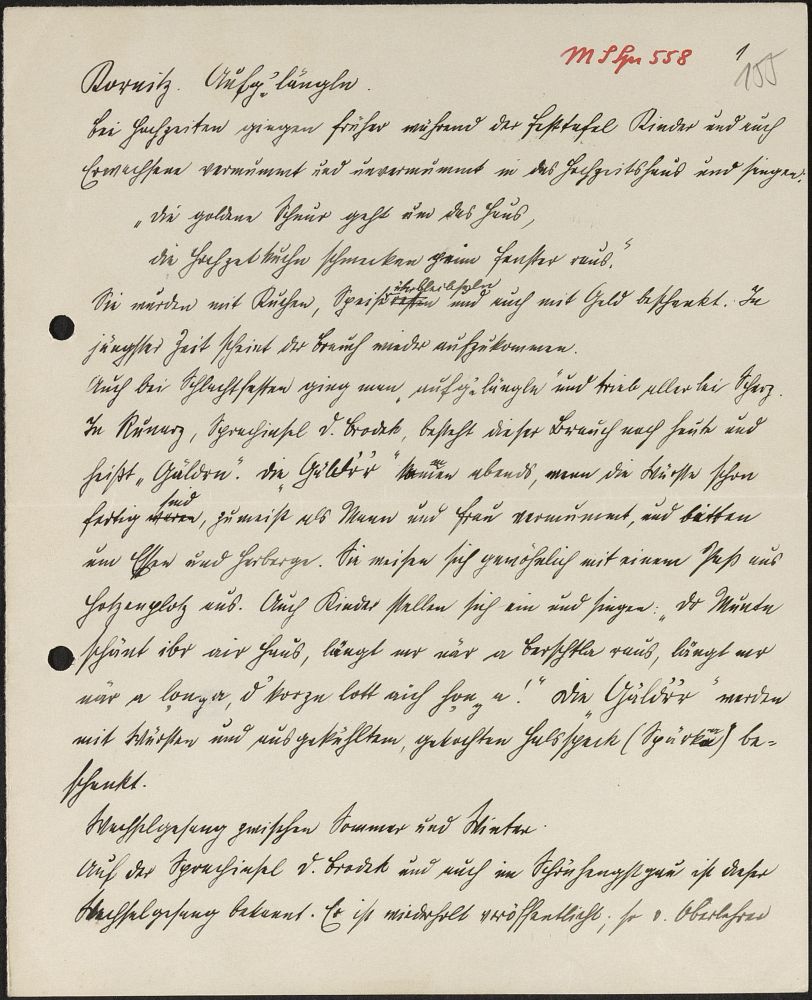 MSpr 558 1
155
Kornitz. Aufg'längln.
Bei Hochzeiten giengen früher während der Festtafel Kinder und auch
Erwachsene vermummt und unvermummt in das Hochzeitshaus und singen:
„Die goldene Schnur geht um das Haus,
die Hochzetkuchn schmecken zum Fenster raus."
Sie wurden mit Kuchen, Speiseresten überbleibseln und auch mit Geld beschenkt. In
jüngster Zeit scheint der Brauch wieder aufzukommen.
Auch bei Schlachtfesten ging man „aufg'längln" und trieb allerlei Scherz.
In Runarz, Sprachinsel D. Brodek, besteht dieser Brauch noch heute und
heißt „Gäldrn". Die „Gäldrr" kommen abends, wenn die Würste schon
fertig waren sind, zumeist als Mann und Frau vermummt, und bitten
um Essen und Herberge. Sie weisen sich gewöhnlich mit einem Paß aus
Hotzenplotz aus. Auch Kinder stellen sich ein und singen: „Dr Muнta
schäint ibr air Haus, längt mr när a Berschtla raus, längt mr
när a longa, d' korzn lott aich honga!" Die „Gäldrr" werden
mit Würsten und ausgekühltem, gekochten Halsspeck (Spürkn) be=
schenkt.
Wechselgesang zwischen Sommer und Winter.
Auf der Sprachinsel D. Brodek und auch im Schönhengstgau ist dieser
Wechselgesang bekannt. Er ist wiederholt veröffentlicht; so v. Oberlehrer